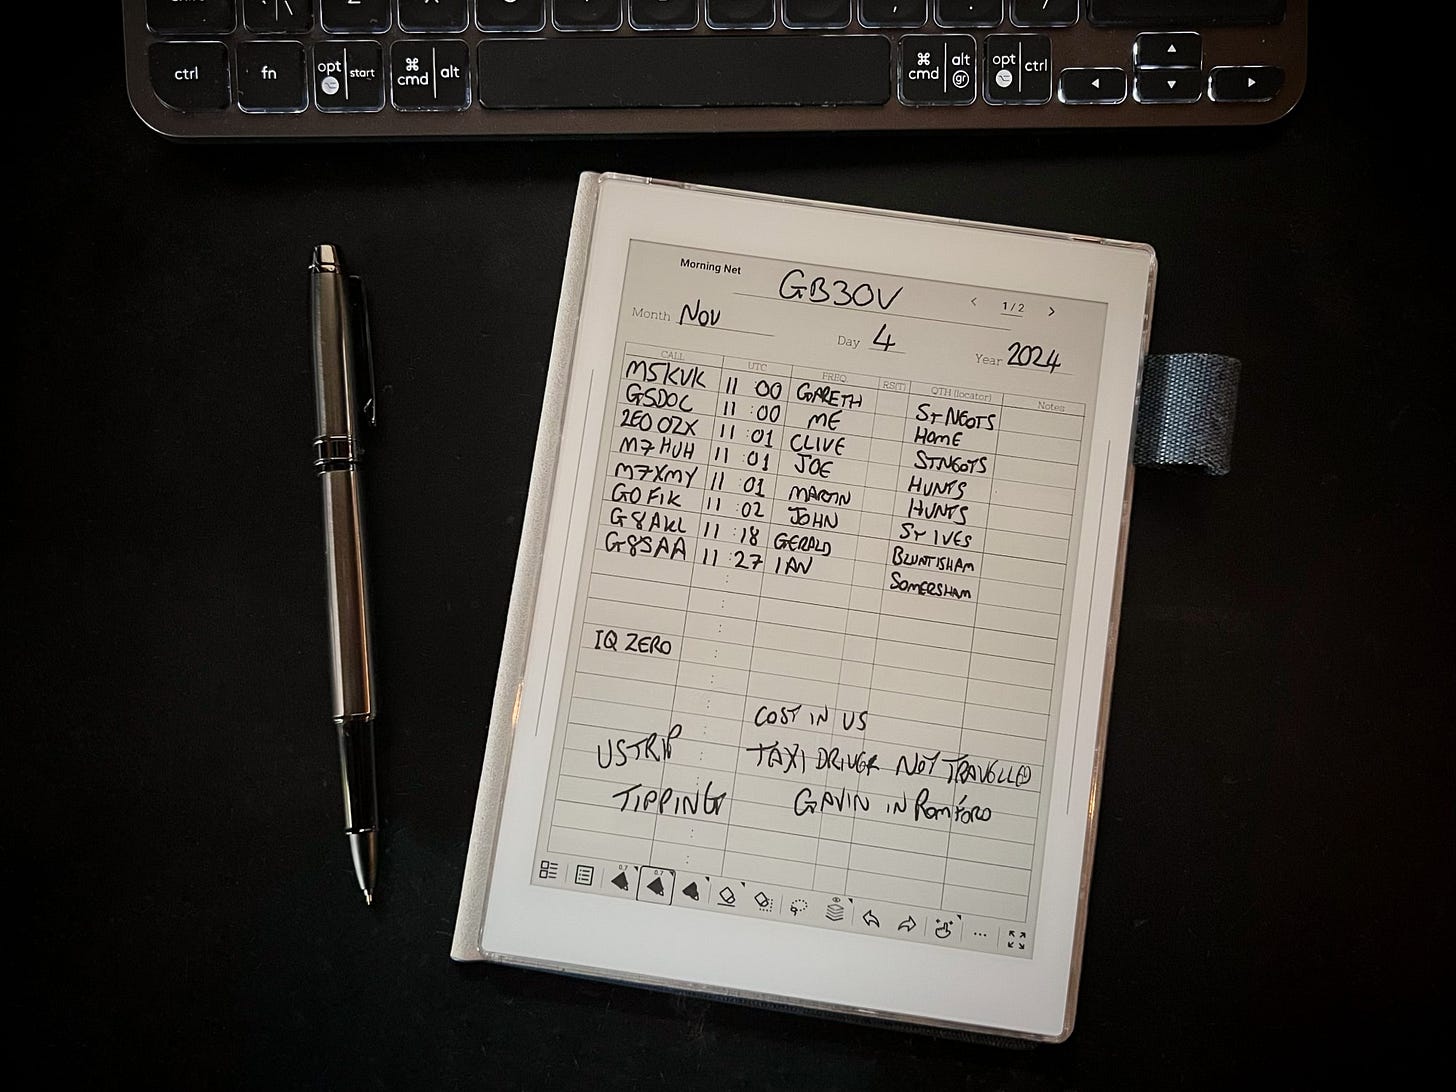 ctrl fn opt start ⌘ cmd alt ⌘ cmd alt gr opt ctrl
Morning Net GB3OV 1/2
Month Nov Day 4 Year 2024
CALL UTC FREQ RS(T) QTH (locator) Notes
M5KVK 11:00 GARETH ST NEOTS
G5DOC 11:00 ME HOME
2E0 OZX 11:01 CLIVE ST.NEOTS
M7HUH 11:01 JOE HUNTS
M7XMY 11:01 MARTIN HUNTS
G0FIK 11:02 JOHN ST IVES
G8AKL 11:18 GERALD BLUNTISHAM
G8SAA 11:27 IAN SOMERSHAM
IQ ZERO
COST IN US
US TRIP TAXI DRIVER NOT TRAVELLED
TIPPING GAVIN IN ROMFORD
0.7 0.7